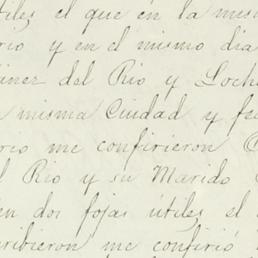 tiles el que en la mism
rio y en el mismo dia
inez del Rio y Loch
misma Ciudad y fe
rio me confirieron
l Rio y su Marido
en dos fojas útiles el
cribieron me confirió